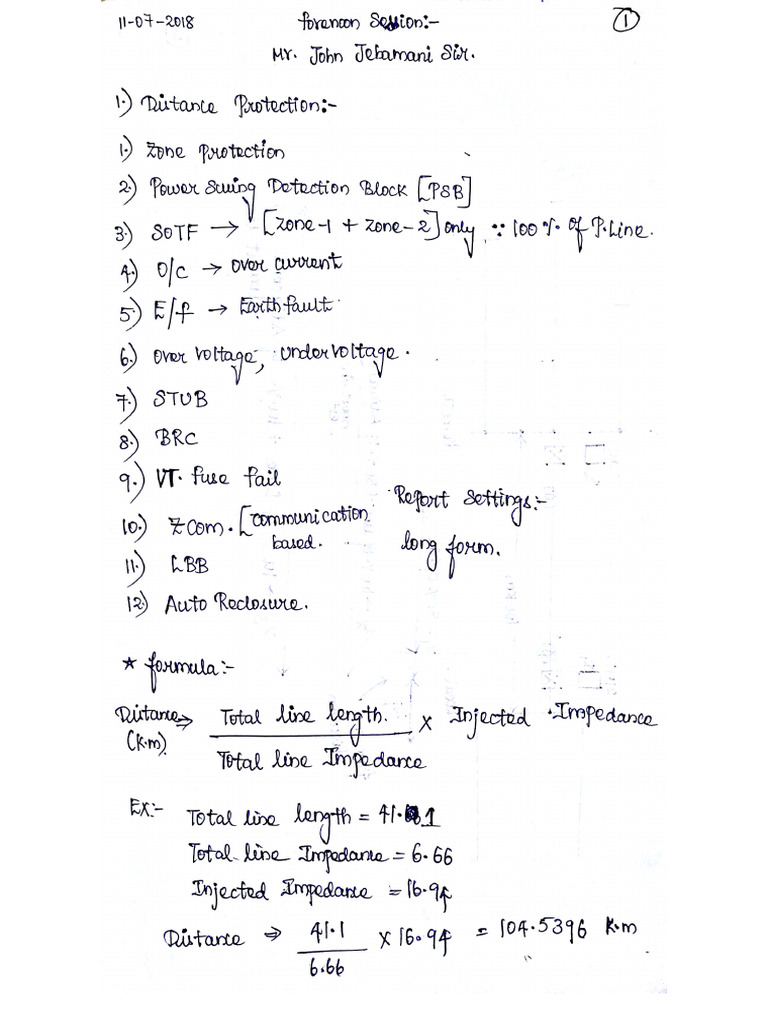 11-07-2018 Forenoon Session:- 1
Mr. John Jebamani Sir.
1.) Distance Protection:-
1.) Zone Protection
2.) Power Swing Detection Block [PSB]
3.) SOTF → [Zone-1 + Zone-2] only ∵ 100 % of P.Line.
4.) O/C → Over current
5.) E/f → Earth fault.
6.) Over voltage, Under voltage.
7.) STUB
8.) BRC
9.) VT. fuse fail
10.) Z com. [communication based.
11.) LBB
12.) Auto Reclosure.
Report Settings:-
long form.
* formula:-
Distance (K.m) ⇒ Total line length. / Total line Impedance × Injected Impedance
EX:- Total line length = 41.1
Total line Impedance = 6.66
Injected Impedance = 16.94
Distance ⇒ 41.1 / 6.66 × 16.94 = 104.5396 K.m